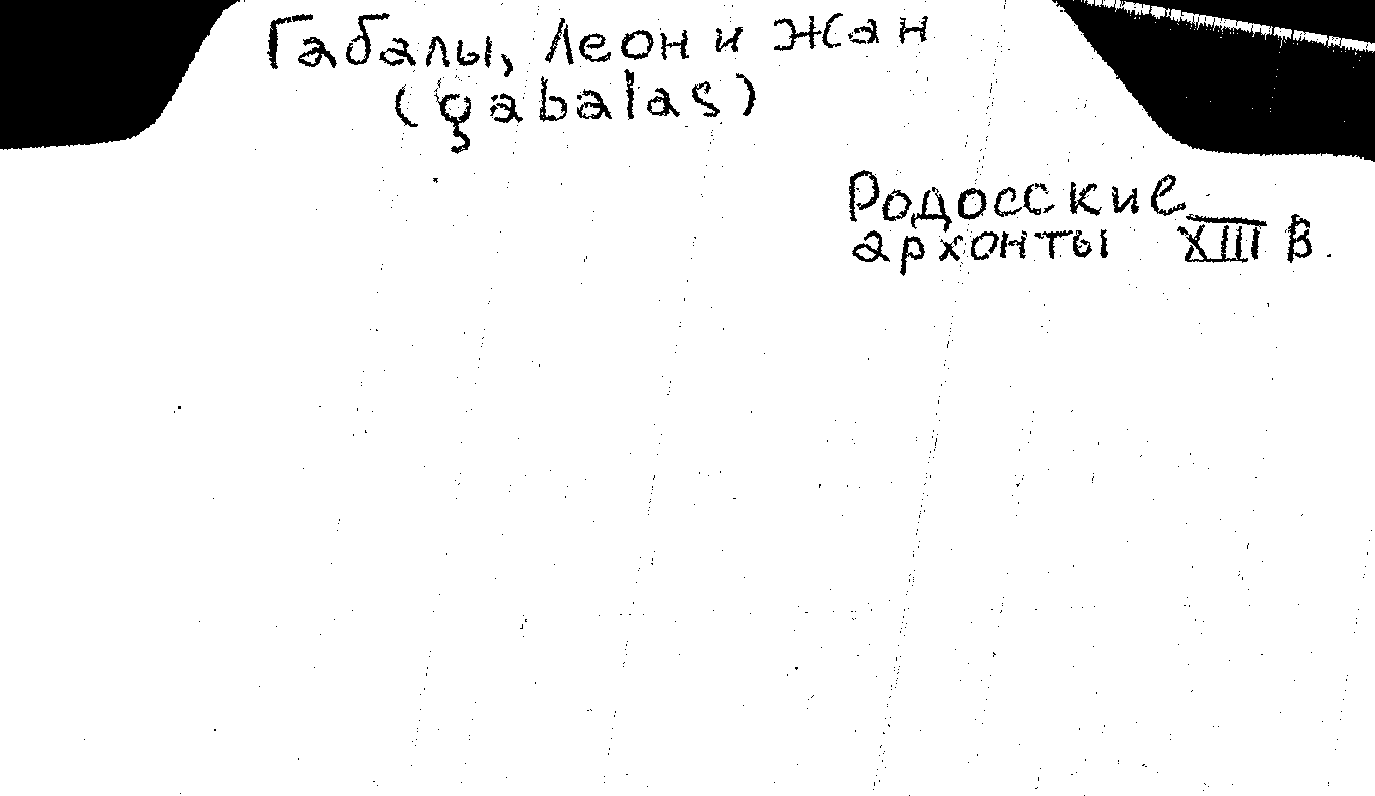 Габалы, Леон и Жан
(gabalas)
Родосские
архонты XIII в.